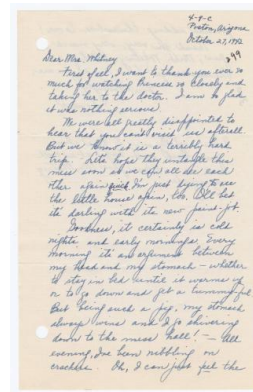 4-8-C
Poston, Arizona
October 27, 1942
299
Dear Mrs. Whitney
First of all, I want to thank you ever so
much for watching Princess so closely and
taking her to the doctor. I am so glad
it was nothing serious.
We were all pretty disappointed to
hear that you can't visit us afterall
But we know it is a terribly hard
trip. Lets hope they untangle this
mess soon so we can all see each
other again. I'm just dying to see
the little house again, too. I'll bet
its darling with its new paint-job.
Goodness, it certainly is cold
nights and early mornings. Every
morning its an argument between
my head and my stomach — whether
to stay in bed until it warms up
or to go down and get a tummy ful
But being such a pig, my stomach
always wins and I go shivering
down to the mess hall! — All
evening, I've been nibbling on
crackers. Oh, I can just feel the